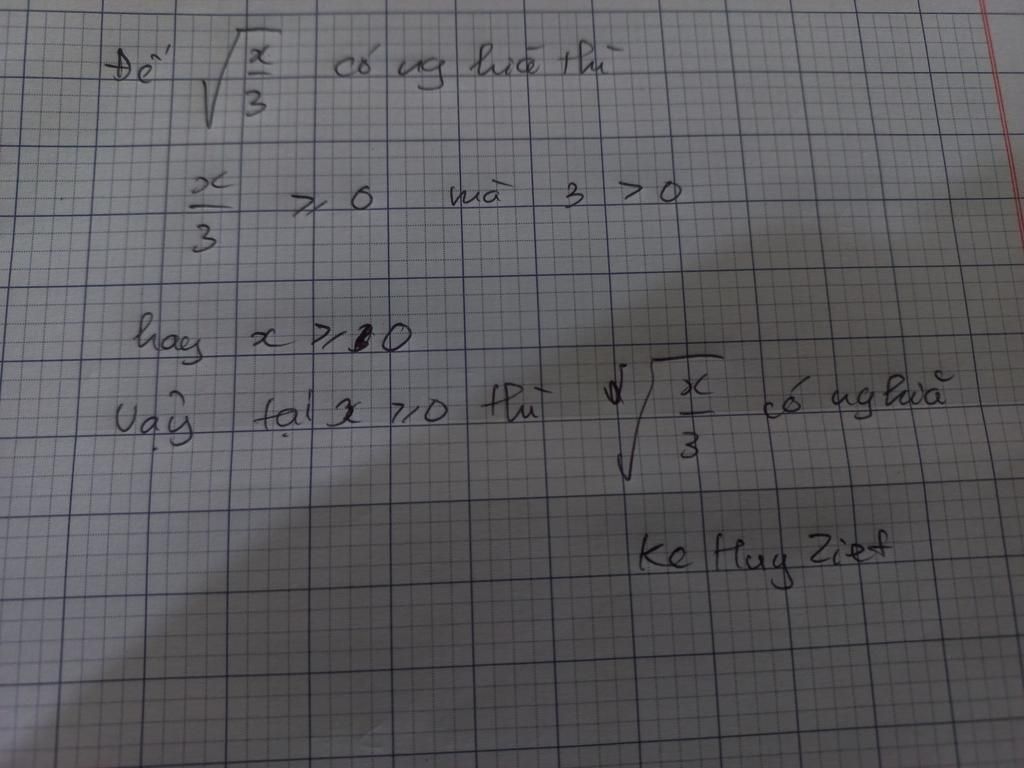 Để √(x/3) có nghiã thì
x/3 ⩾ 0 mà 3 > 0
hay x ⩾ 0
Vậy tại x ⩾ 0 thì √(x/3) có nghiã
Ke Huy Ziet